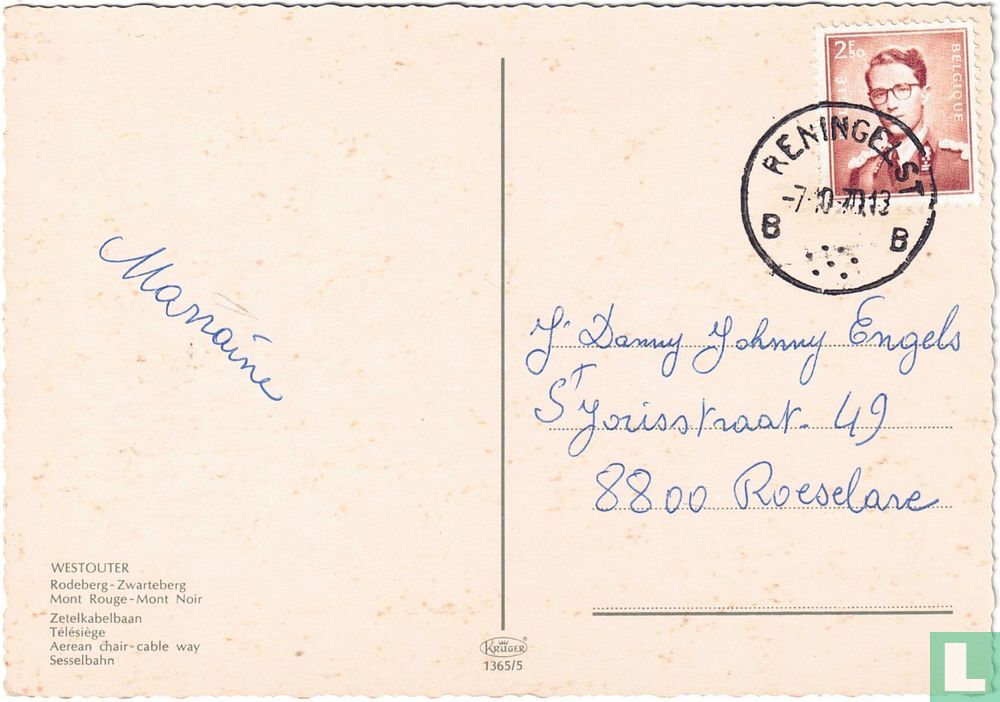 2F50
BELGIQUE
RENINGELST
-7-10-70.13
B B
Marraine
Jr Danny Johnny Engels
ST Jorisstraat. 49
8800 Roeselare
WESTOUTER
Rodeberg-Zwarteberg
Mont Rouge-Mont Noir
Zetelkabelbaan
Télésiège
Aerean chair-cable way
Sesselbahn
KRÜGER®
1365/5
L